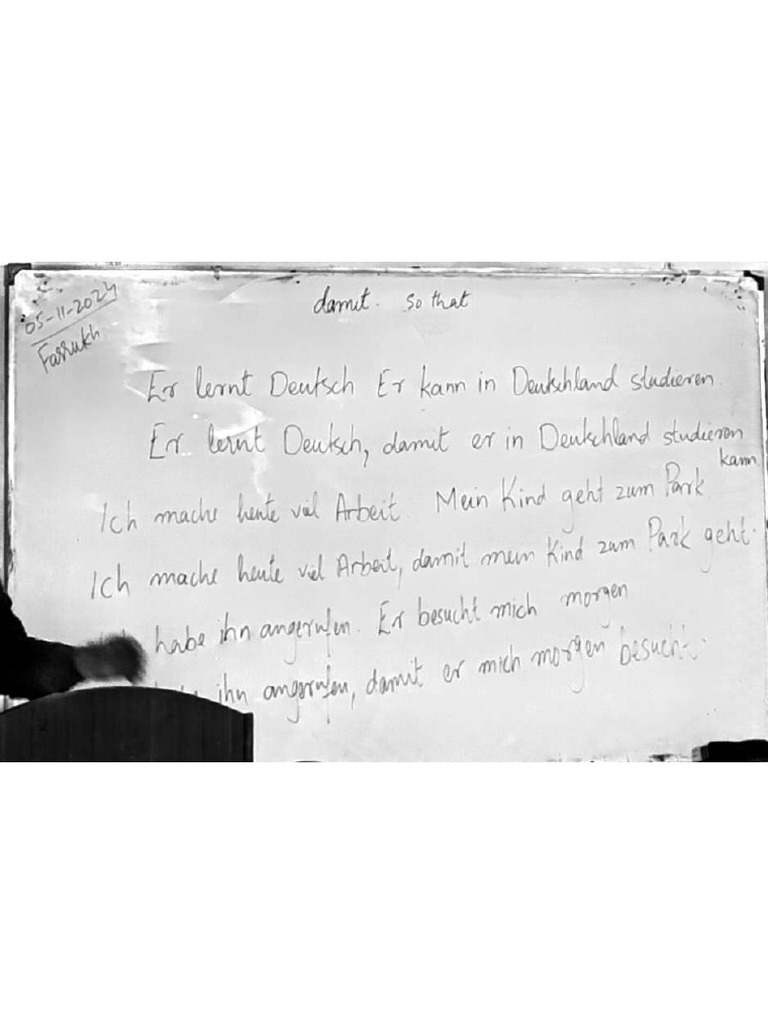 05-11-2024
Farrukh
damit. so that
Er lernt Deutsch Er kann in Deutschland studieren.
Er lernt Deutsch, damit er in Deutschland studieren
kann.
Ich mache heute viel Arbeit. Mein Kind geht zum Park
Ich mache heute viel Arbeit, damit mein Kind zum Park geht.
habe ihn angerufen. Er besucht mich morgen
ihn angerufen, damit er mich morgen besucht.